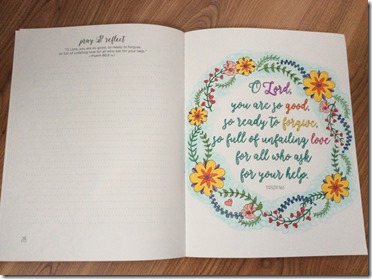 pray & reflect
"O Lord, you are so good, so ready to forgive,
so full of unfailing love for all who ask for your help."
O Lord,
you are so good,
so ready to forgive,
so full of unfailing love
for all who ask
for your help.